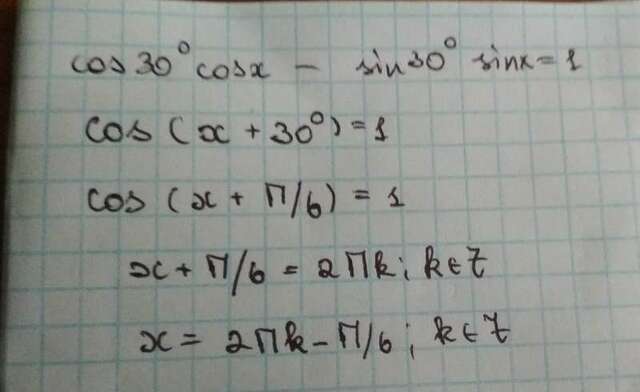 cos30° cosx - sin30° sinx = 1
cos (x + 30°) = 1
cos (x + π/6) = 1
x + π/6 = 2πk; k∈Z
x = 2πk - π/6; k∈Z